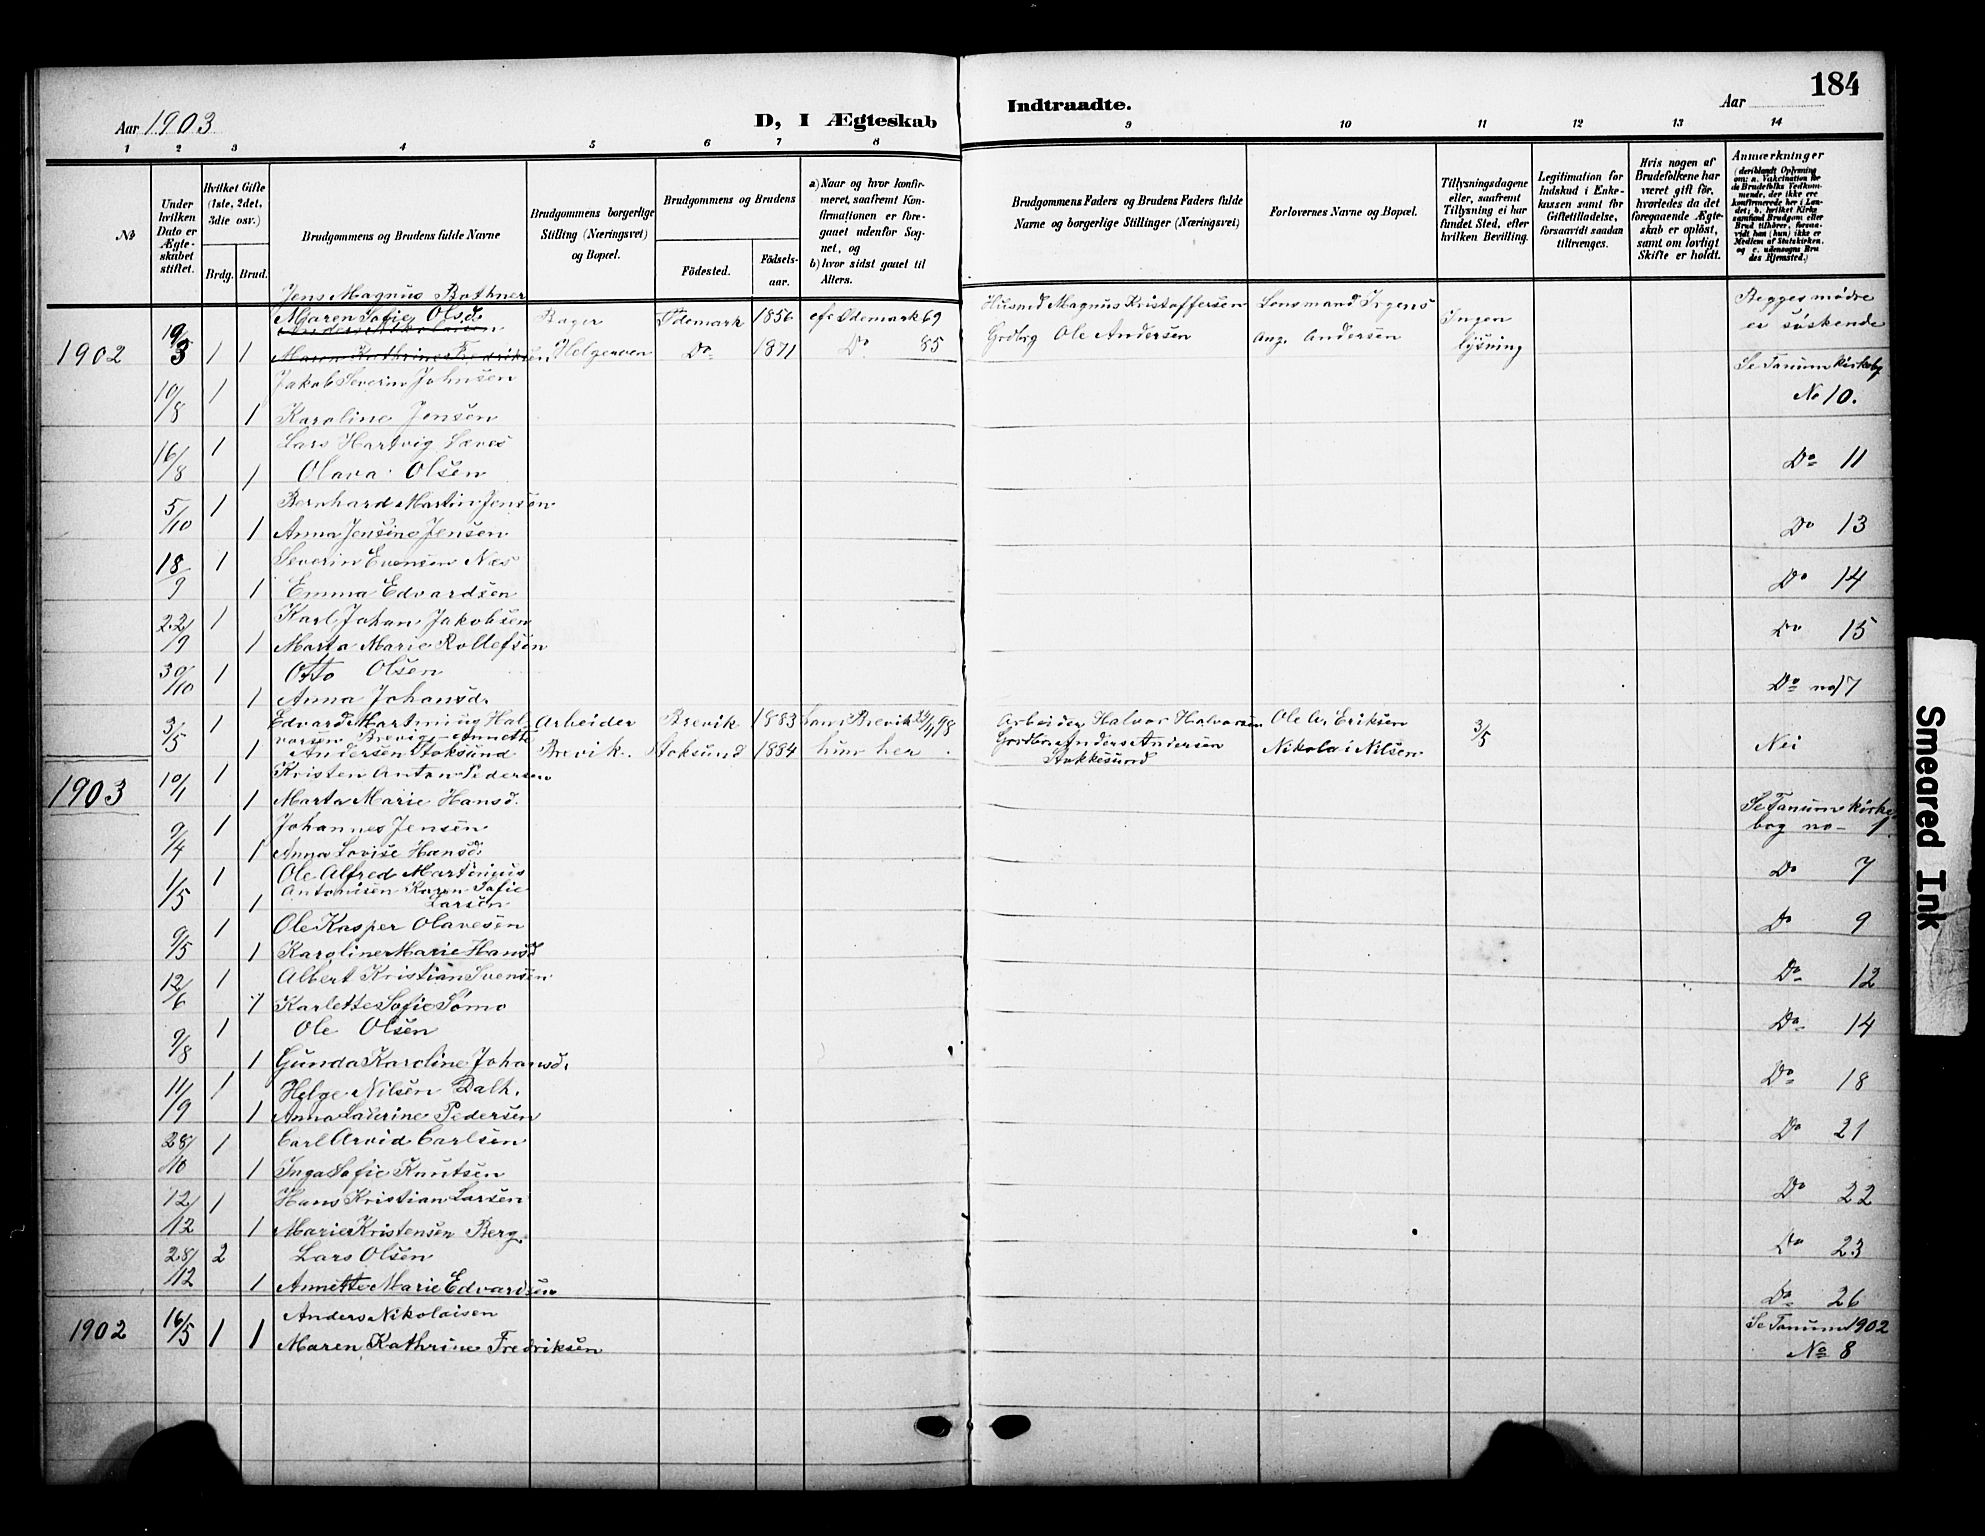 184
Aar 1903
D, I Ægteskab
Indtraadte.
Aar
1 2 3 4 5 6 7 8 9 10 11 12 13 14
No
Under hvilken Dato er Ægteskabet stiftet.
Hvilket Gifte (1ste, 2det, 3die osv.)
Brdg. Brud.
Brudgommens og Brudens fulde Navne
Brudgommens borgerlige Stilling (Næringsvei) og Bopæl.
Brudgommens og Brudens
Födested.
Födselsaar.
a) Naar og hvor konfirmeret, saafremt Konfirmationen er foregaaet udenfor Sognet, og
b) hvor sidst gaaet til Alters.
Brudgommens Faders og Brudens Faders fulde Navne og borgerlige Stillinger (Næringsvei)
Forlovernes Navne og Bopæl.
Tillysningsdagene eller, saafremt Tillysning ei har fundet Sted, efter hvilken Bevilling.
Legitimation for Indskud i Enkekassen samt for Giftetilladelse, forsaavidt saadan tiltrænges.
Hvis nogen af Brudefolkene har været gift för, hvorledes da det foregaaende Ægteskab er oplöst, samt om lovligt Skifte er holdt.
Anmærkninger
Jens Magnus Bothner
Maren Sofie Olsd. Bager Ødemark 1856 efe Ødemark 69 Husmd Magnus Kristoffersen Lensmand Irgens Begges mødre
1902 19/3 1 1 Maren Kathrine Fredriksen Helgeroen Do 1871 Do 85 Grdbrg Ole Andersen Aug. Andersen Ingen lysning er söskende
10/8 1 Jakob Severin Johnsen Se Tanum kirkebg
1 Karoline Jensen No 10.
16/8 1 Lars Hartvig
1 Olava Olsen Do 11
5/10 1 Bernhard Martin Jensen
1 Anna Jensine Jensen Do 13
18/9 1 Severin Evensen Næs
1 Emma Edvardsen Do 14
22/9 1 Karl Johan Jakobsen
1 Marta Marie Rollefsen Do 15
30/10 1 Otto Olsen
1 Anna Johansd. Do no 17
3/5 1 Edvard Martinius Hal- Arbeider Brevik 1883 Brevik 98 Arbeider Halvor Halvorsen Ole A. Eriksen 3/5
vorsen Brevig - Annette
1 Andersen Stoksund Brevik. Stoksund 1884 hun her Grdbr. Anders Andersen Nikolai Nilsen Nei
Stokkesund
1903 10/1 1 Kristen Anton Pedersen
1 Marta Marie Hansd. Se Tanum kirke-
9/4 1 Johannes Jensen bog no - 1
1 Anna Lovise Hansd.
1/5 1 Ole Alfred Martinius Do 7
Antonisen Karen Sofie
1 Larsen
9/5 1 Ole Kasper Olavesen Do 9
1 Karoline Marie Hansd
12/6 1 Albert Kristian Svensen Do 12
1 Karlette Sofie Sømo
9/8 1 Ole Olsen Do 14
1 Gunda Karoline Johansd.
11/9 1 Helge Nilsen Dalh. Do 18
1 Anna Laurine Pedersen
28/10 1 Carl Arvid Carlsen Do 21
1 Inga Sofie Knutsen
12/12 1 Hans Kristian Larsen Do 22
1 Marie Kristensen Berg.
28/12 2 Lars Olsen Do 23
1 Annette Marie Edvardsen
Do 26
1902 16/5 1 1 Anders Nikolaisen Se Tanum 1902
Maren Kathrine Fredriksen No 8
Smeared Ink